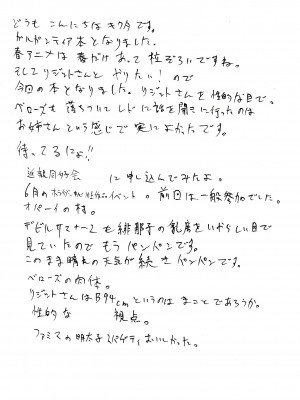 どうも こんにちは キクタです。
ガルガンティア本となりました。
春アニメは 春だけ あって 粒ぞろいですね。
そして リジットさんと やりたい！ ので
今回の本となりました。リジットさんを性的な目で。
ベローズも 落ちついて レドに 話を聞きに行ったのは
お姉さん という感じで 実に よかったです。
待ってるにょ!!
に 申し込んでみたよ。
6月の イベント。前回は一般参加でした。
オパーイの村。
デビルサマナー2も 緋那子の乳房をいやらしい目で
見ていたので もう パンパンです。
このまま晴れの天気が続き パンパンです。
ベローズの肉体。
リジットさんはB94cmというのは まことであろうか。
性的な 視点。
ファミマの明太子スパゲティおいしかった。